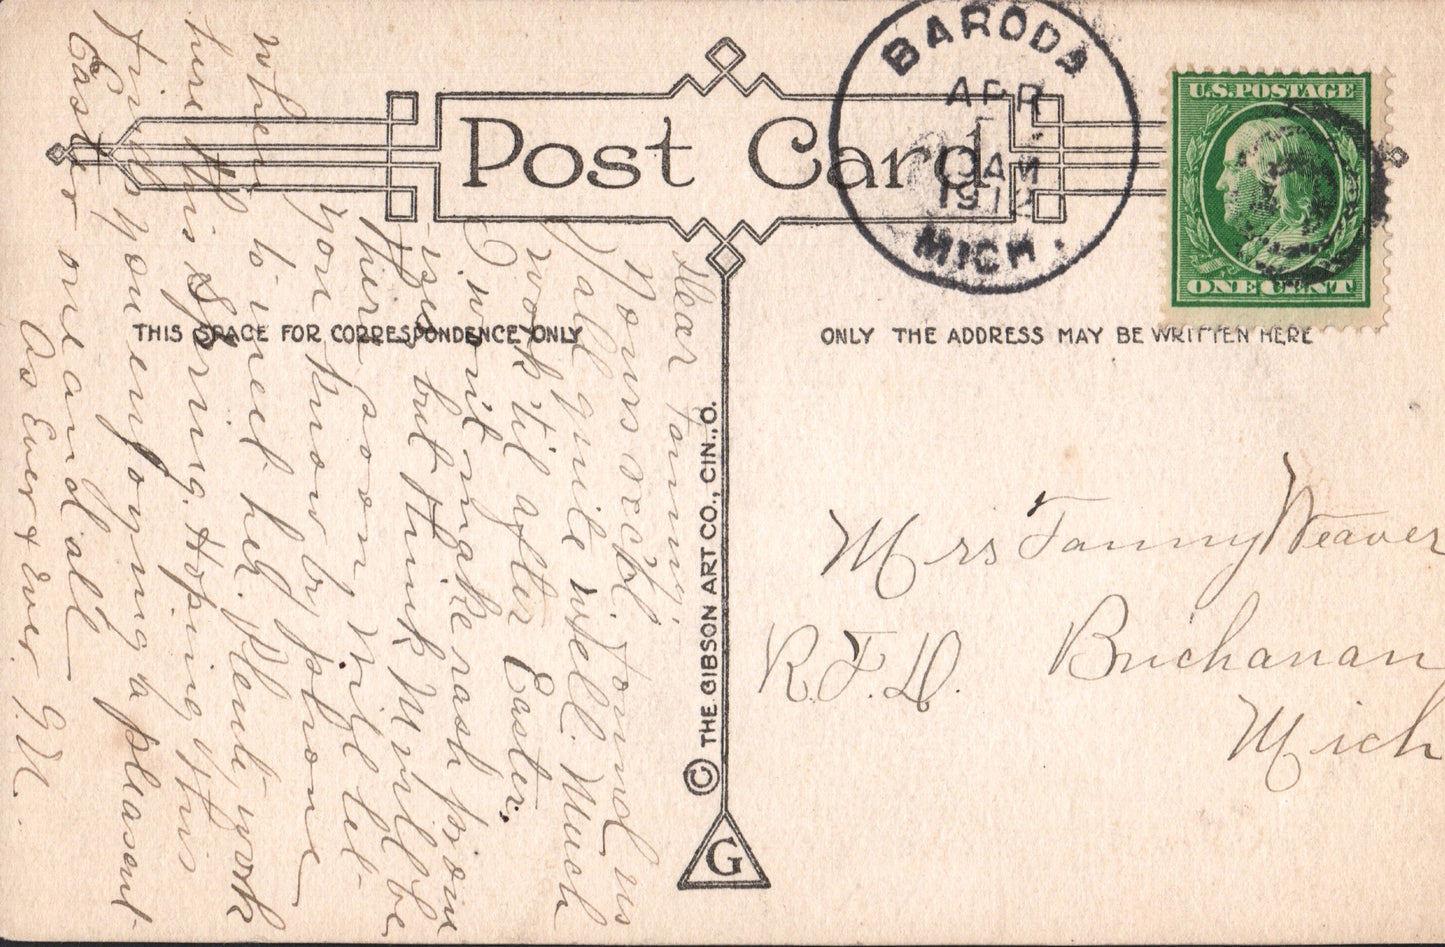 Post Card
BARODA
APR
1
AM
MICH.
U.S. POSTAGE
ONE CENT
THIS SPACE FOR CORRESPONDENCE ONLY
ONLY THE ADDRESS MAY BE WRITTEN HERE
© THE GIBSON ART CO., CIN., O.
G
Dear Fanny;
Yours rec'd. found us
all quite well. Much
work 'til after Easter.
I won't make rash prom
ises but think M. will be
There soon, will let
you know by phone
when to meet her. Plenty work
here this Spring. Hoping this
finds you enjoying a pleasant
Easter one and all
As Ever & Ever
Mrs Fanny Weaver
R.F.D. Buchanan
Mich